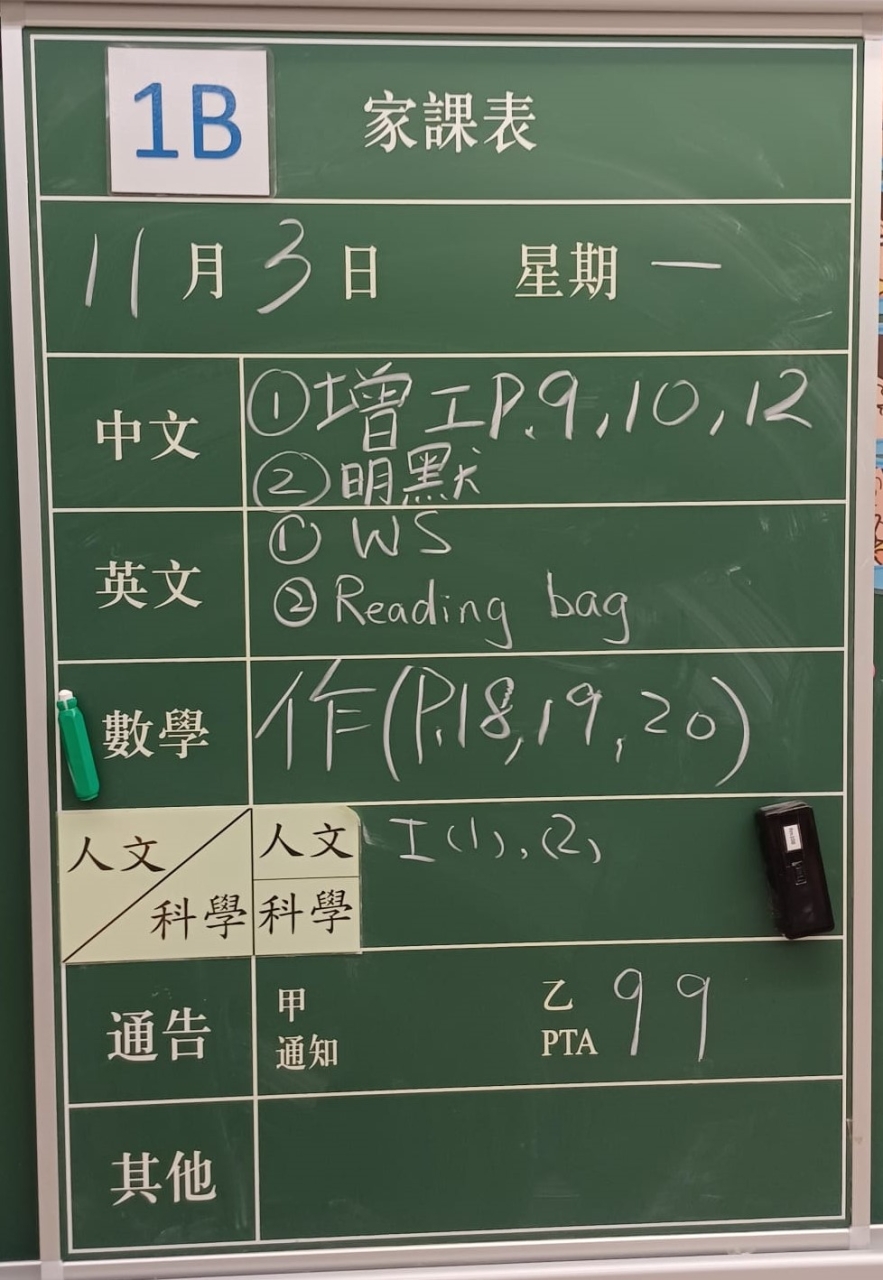 1B 家課表
11月3日 星期一
中文 ①增工P.9,10,12
②明默
英文 ① WS
② Reading bag
數學 作(P.18,19,20)
人文 人文 工(1),(2)
科學 科學
通告 甲 乙 99
通知 PTA
其他